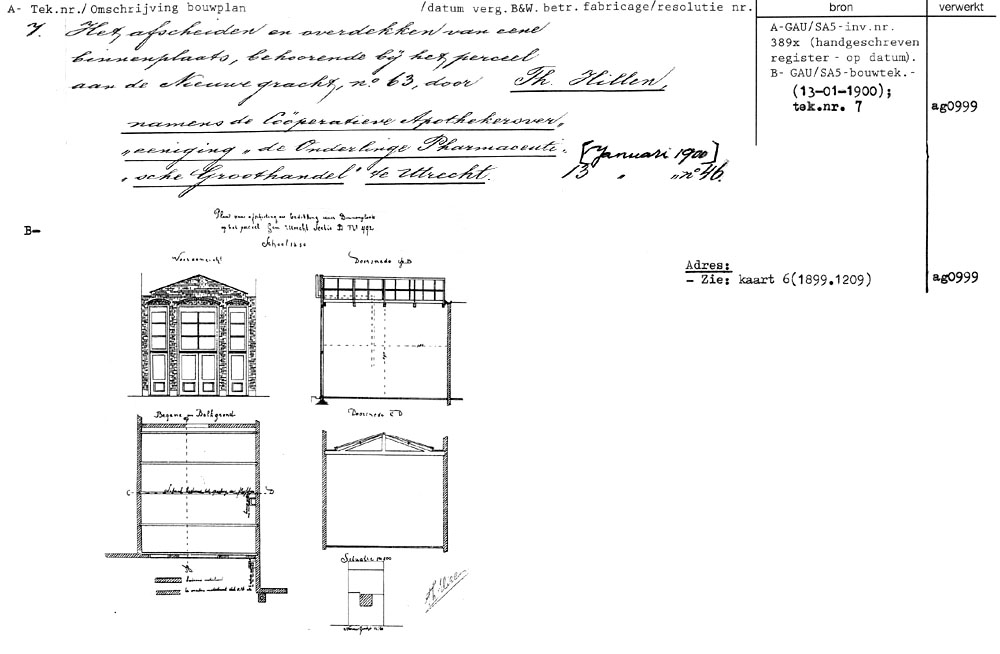 A- Tek.nr./Omschrijving bouwplan /datum verg.B&W. betr. fabricage/resolutie nr. bron verwerkt
7. Het afscheiden en overdekken van eene
binnenplaats, behoorende bij het perceel
aan de Nieuwe gracht, no. 63, door Th. Hillen,
namens de Coöperatieve Apothekersver,,
„eeniging „de Onderlinge Pharmaceuti.
„sche Groothandel" te Utrecht.
[Januari 1900]
13 „ „ no 46.
A-GAU/SA5-inv.nr.
389x (handgeschreven
register - op datum).
B- GAU/SA5-bouwtek.-
(13-01-1900);
tek.nr. 7 ag0999
B-
op het perceel Sectie B No 492
Schaal
Vooraanzicht
Doorsnede
Adres:
- Zie: kaart 6(1899.1209) ag0999
Begane Balkgrond
Doorsnede C D
C D
Situatie
Th Hillen